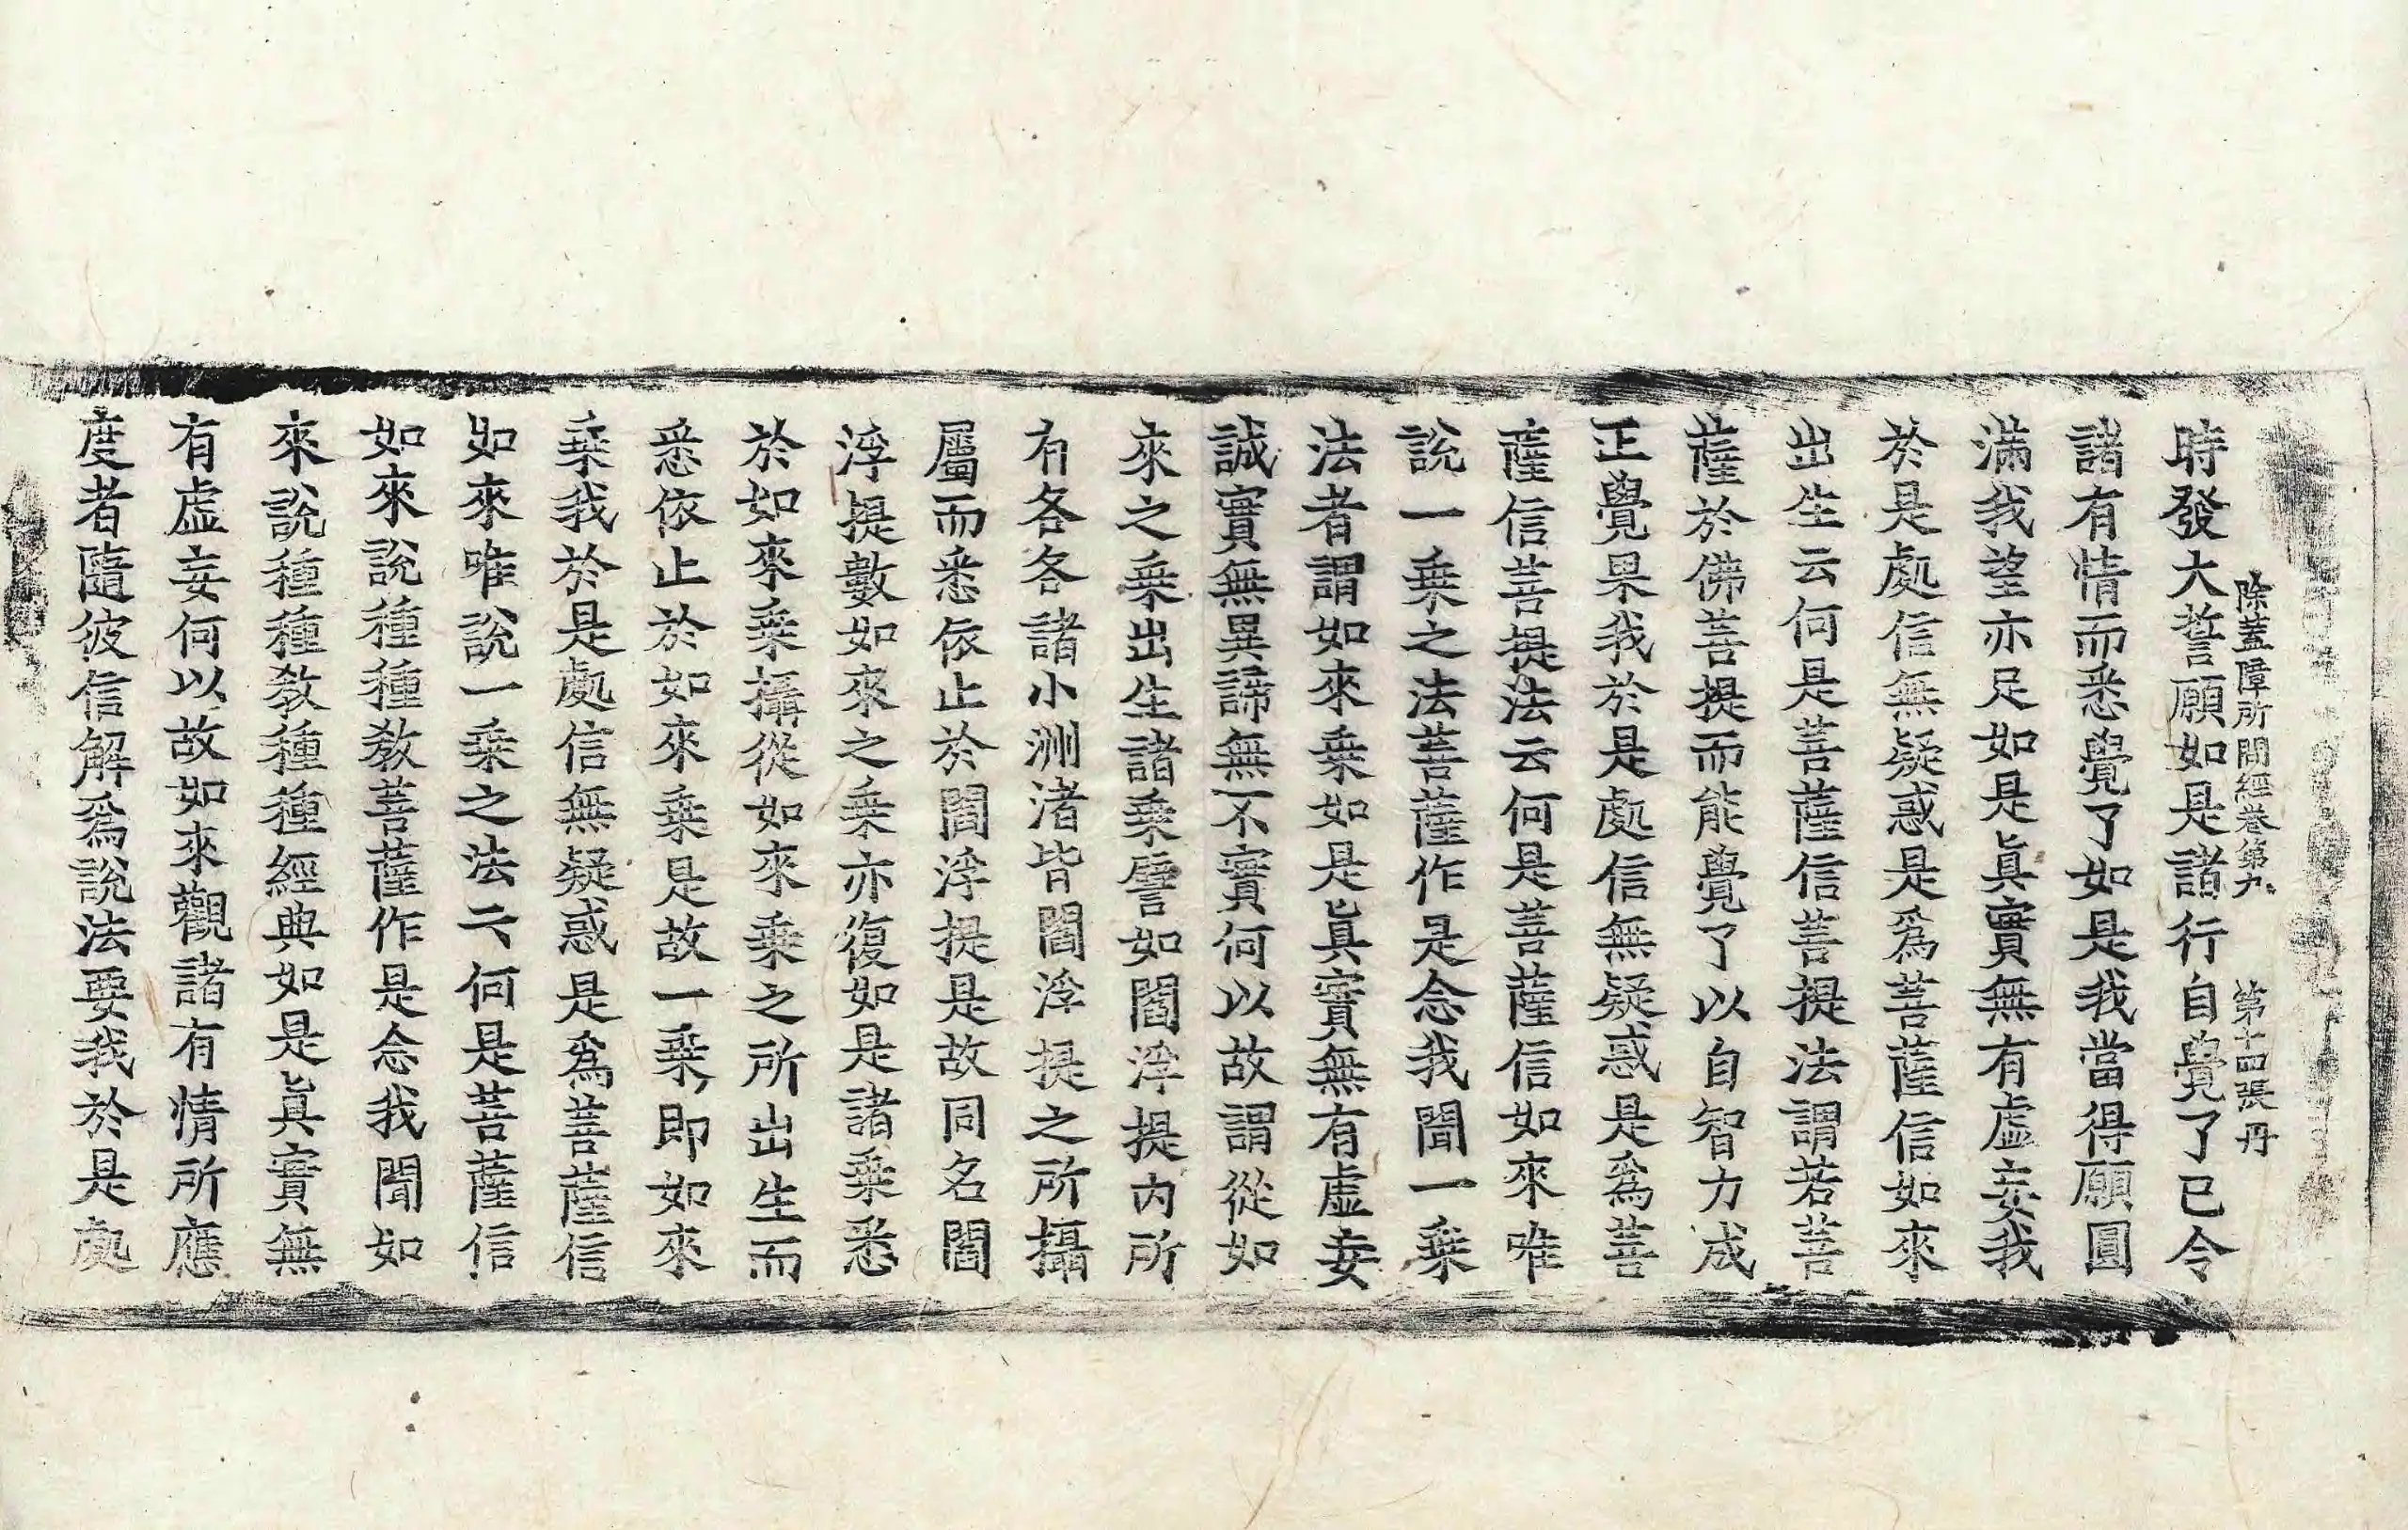 除蓋障所問經卷第九　第十四張　丹
時發大誓願如是諸行自覺了已令
諸有情而悉覺了如是我當得願圓
滿我望亦足如是眞實無有虛妄我
於是處信無疑惑是爲菩薩信如來
出生云何是菩薩信菩提法謂若菩
薩於佛菩提而能覺了以自智力成
正覺果我於是處信無疑惑是爲菩
薩信菩提法云何是菩薩信如來唯
說一乗之法菩薩作是念我聞一乗
法者謂如來乗如是眞實無有虛妄
誠實無異諦無不實何以故謂從如
來之乗出生諸乗譬如閻浮提內所
有各各諸小洲渚皆閻浮提之所攝
屬而悉依止於閻浮提是故同名閻
浮提數如來之乗亦復如是諸乗悉
於如來乗攝從如來乗之所出生而
悉依止於如來乗是故一乗即如來
乗我於是處信無疑惑是爲菩薩信
如來唯說一乗之法云何是菩薩信
如來說種種教菩薩作是念我聞如
來說種種教種種經典如是眞實無
有虛妄何以故如來觀諸有情所應
度者隨彼信解爲說法要我於是處